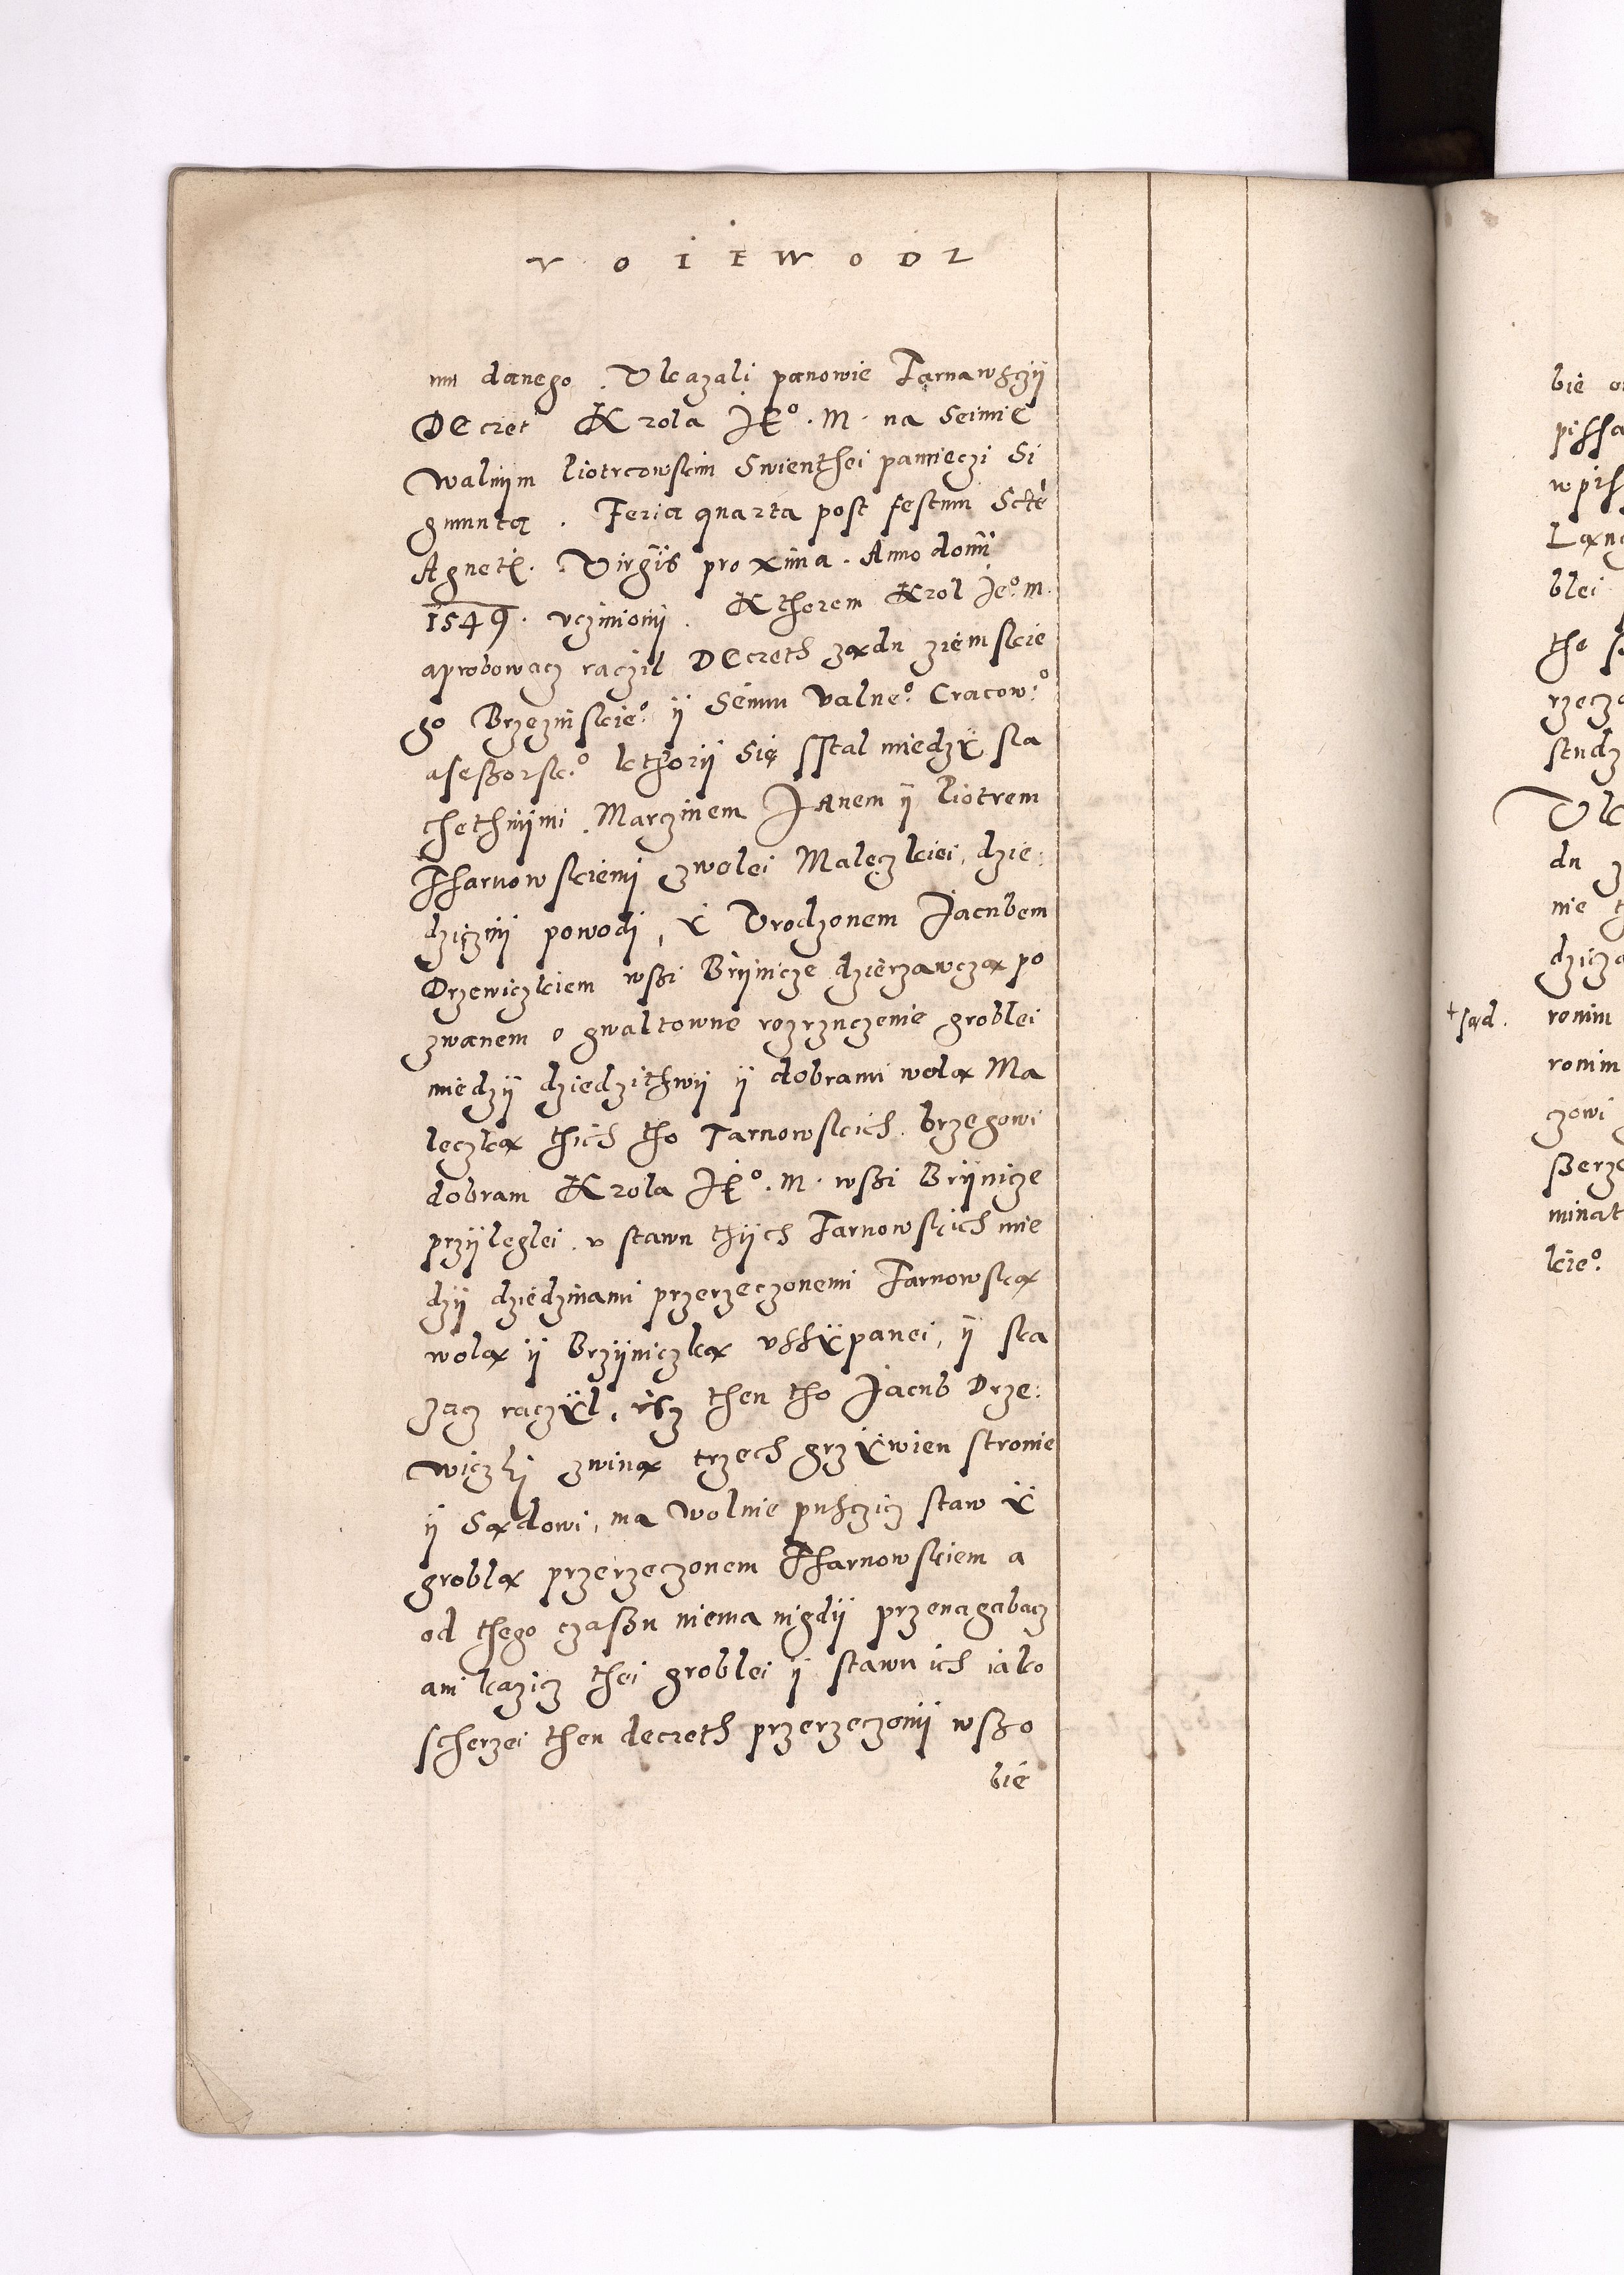 V O I E W O D Z
mu danego . Ukazali panowie Tarnawsczÿ
DEcret Krola JE°. M. na Seimie
walnÿm Piotrcowskim Swienthei pamieczi Si
gmunta . Feria quarta post festum Scte
Agnetis . Virginis proxima . Anno domini
1549. uczinionÿ . Kthorem Krol Je°. m.
aprobowacz raczil DEcreth ządu ziemskie
go Brzezinskie° ÿ Seimu Valne° Cracow:°
asessorsk.° kthorÿ Się sstal miedzÿ sla
chethnÿmi . Marczinem Janem ÿ Piotrem
Tharnowskiemi zwolei Maleczkiei, dzie:
dziczmÿ powodi, ÿ Urodzonem Jacubem
Drzewiczkiem wssi Brÿnicze dzierzawczą po
zwanem o gwaltowne rozrzuczenie groblei
miedzÿ dziedzithwÿ ÿ dobrami wolą Ma
leczką thich tho Tarnowskich . brzegowi
dobram Krola JE°. M. wssi Brÿnicze
przÿleglei . u stawu thÿch Tarnowskich mie
dzÿ dziedzinami przerzeczonemi Tarnowską
wolą ÿ Brzÿniczką ussÿpanei, ÿ ska
zacz raczÿl, isz then tho Jacub Drze:
wiczki zwiną trzech grzÿwien stronie
ÿ Sądowi, ma wolnie pusczicz staw ÿ
groblą przerzeczonem Tharnowskiem a
od thego czassu niema nigdÿ przenagabacz
ani kazicz thei groblei ÿ stawu ich iako
scherzei then decreth przerzeczonÿ wsso
bie
+ sąd.
bie
Laną
blei
tho
ronim
ronim
czowi
kie°.